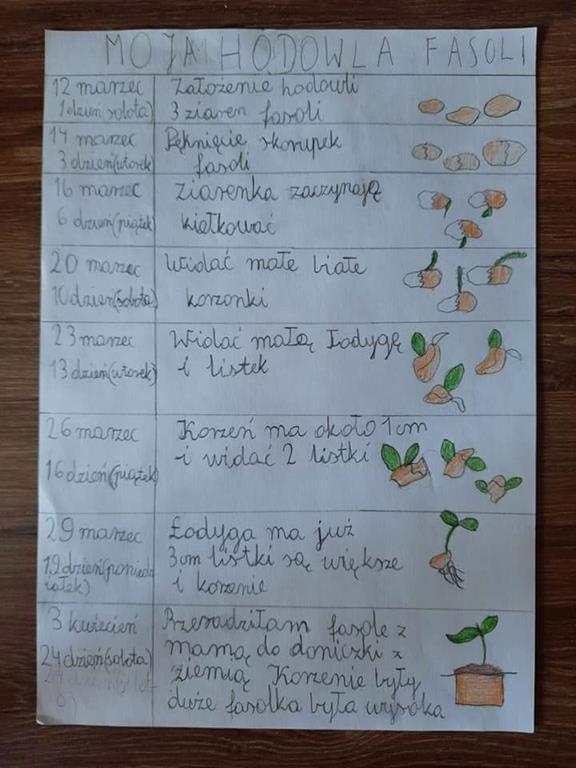 MOJA HODOWLA FASOLI
12 marzec
1 dzień sobota)
Założenie hodowli
3 ziaren fasoli
14 marzec
3 dzień(wtorek
Pęknięcie skorupek
fasoli
16 marzec
6 dzień(piątek)
ziarenka zaczynają
kiełkować
20 marzec
10 dzień(sobota)
Widać małe białe
korzonki
23 marzec
13 dzień(wtorek)
Widać małą Łodygę
i listek
26 marzec
16 dzień(piątek)
Korzeń ma około 1 cm
i widać 2 listki
29 marzec
19 dzień(poniedz
iałek)
Łodyga ma już
3cm listki są większe
i korzenie
3 kwiecień
24 dzień(sobota)
Przesadziłam fasole z
mamą do doniczki z
ziemią Korzenie były
duże fasolka była wysoka